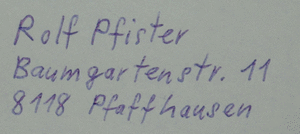 Rolf Pfister
Baumgartenstr. 11
8118 Pfaffhausen